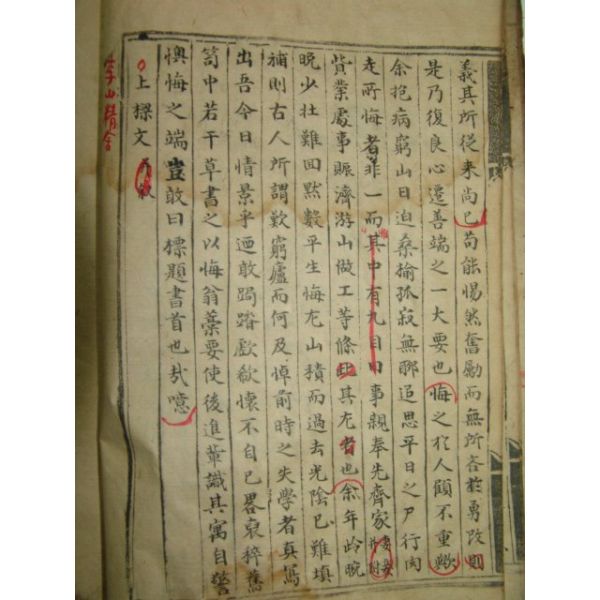 義其所從來尚已苟能惕然奮勵而無所吝於勇改則
是乃復良心遷善端之一大要也悔之於人顧不重歟
余抱病窮山日迫桑揄孤寂無聊追思平日之尸行肉
走所悔者非一而其中有九目曰事親奉先齊家
貨業處事賑濟游山做工等條此其尤者也余年齡晼
晩少壮難回黙數平生悔尤山積而過去光陰已難填
補則古人所謂歎窮廬而何及悼前時之失學者真寫
出吾今日情景乎迺敢跼蹐歔欷懷不自已畧裒稡舊
笥中若干草書之以悔翁藁要使後進軰識其寓自警
懊悔之端豈敢曰標題書首也㢤噫
上樑文